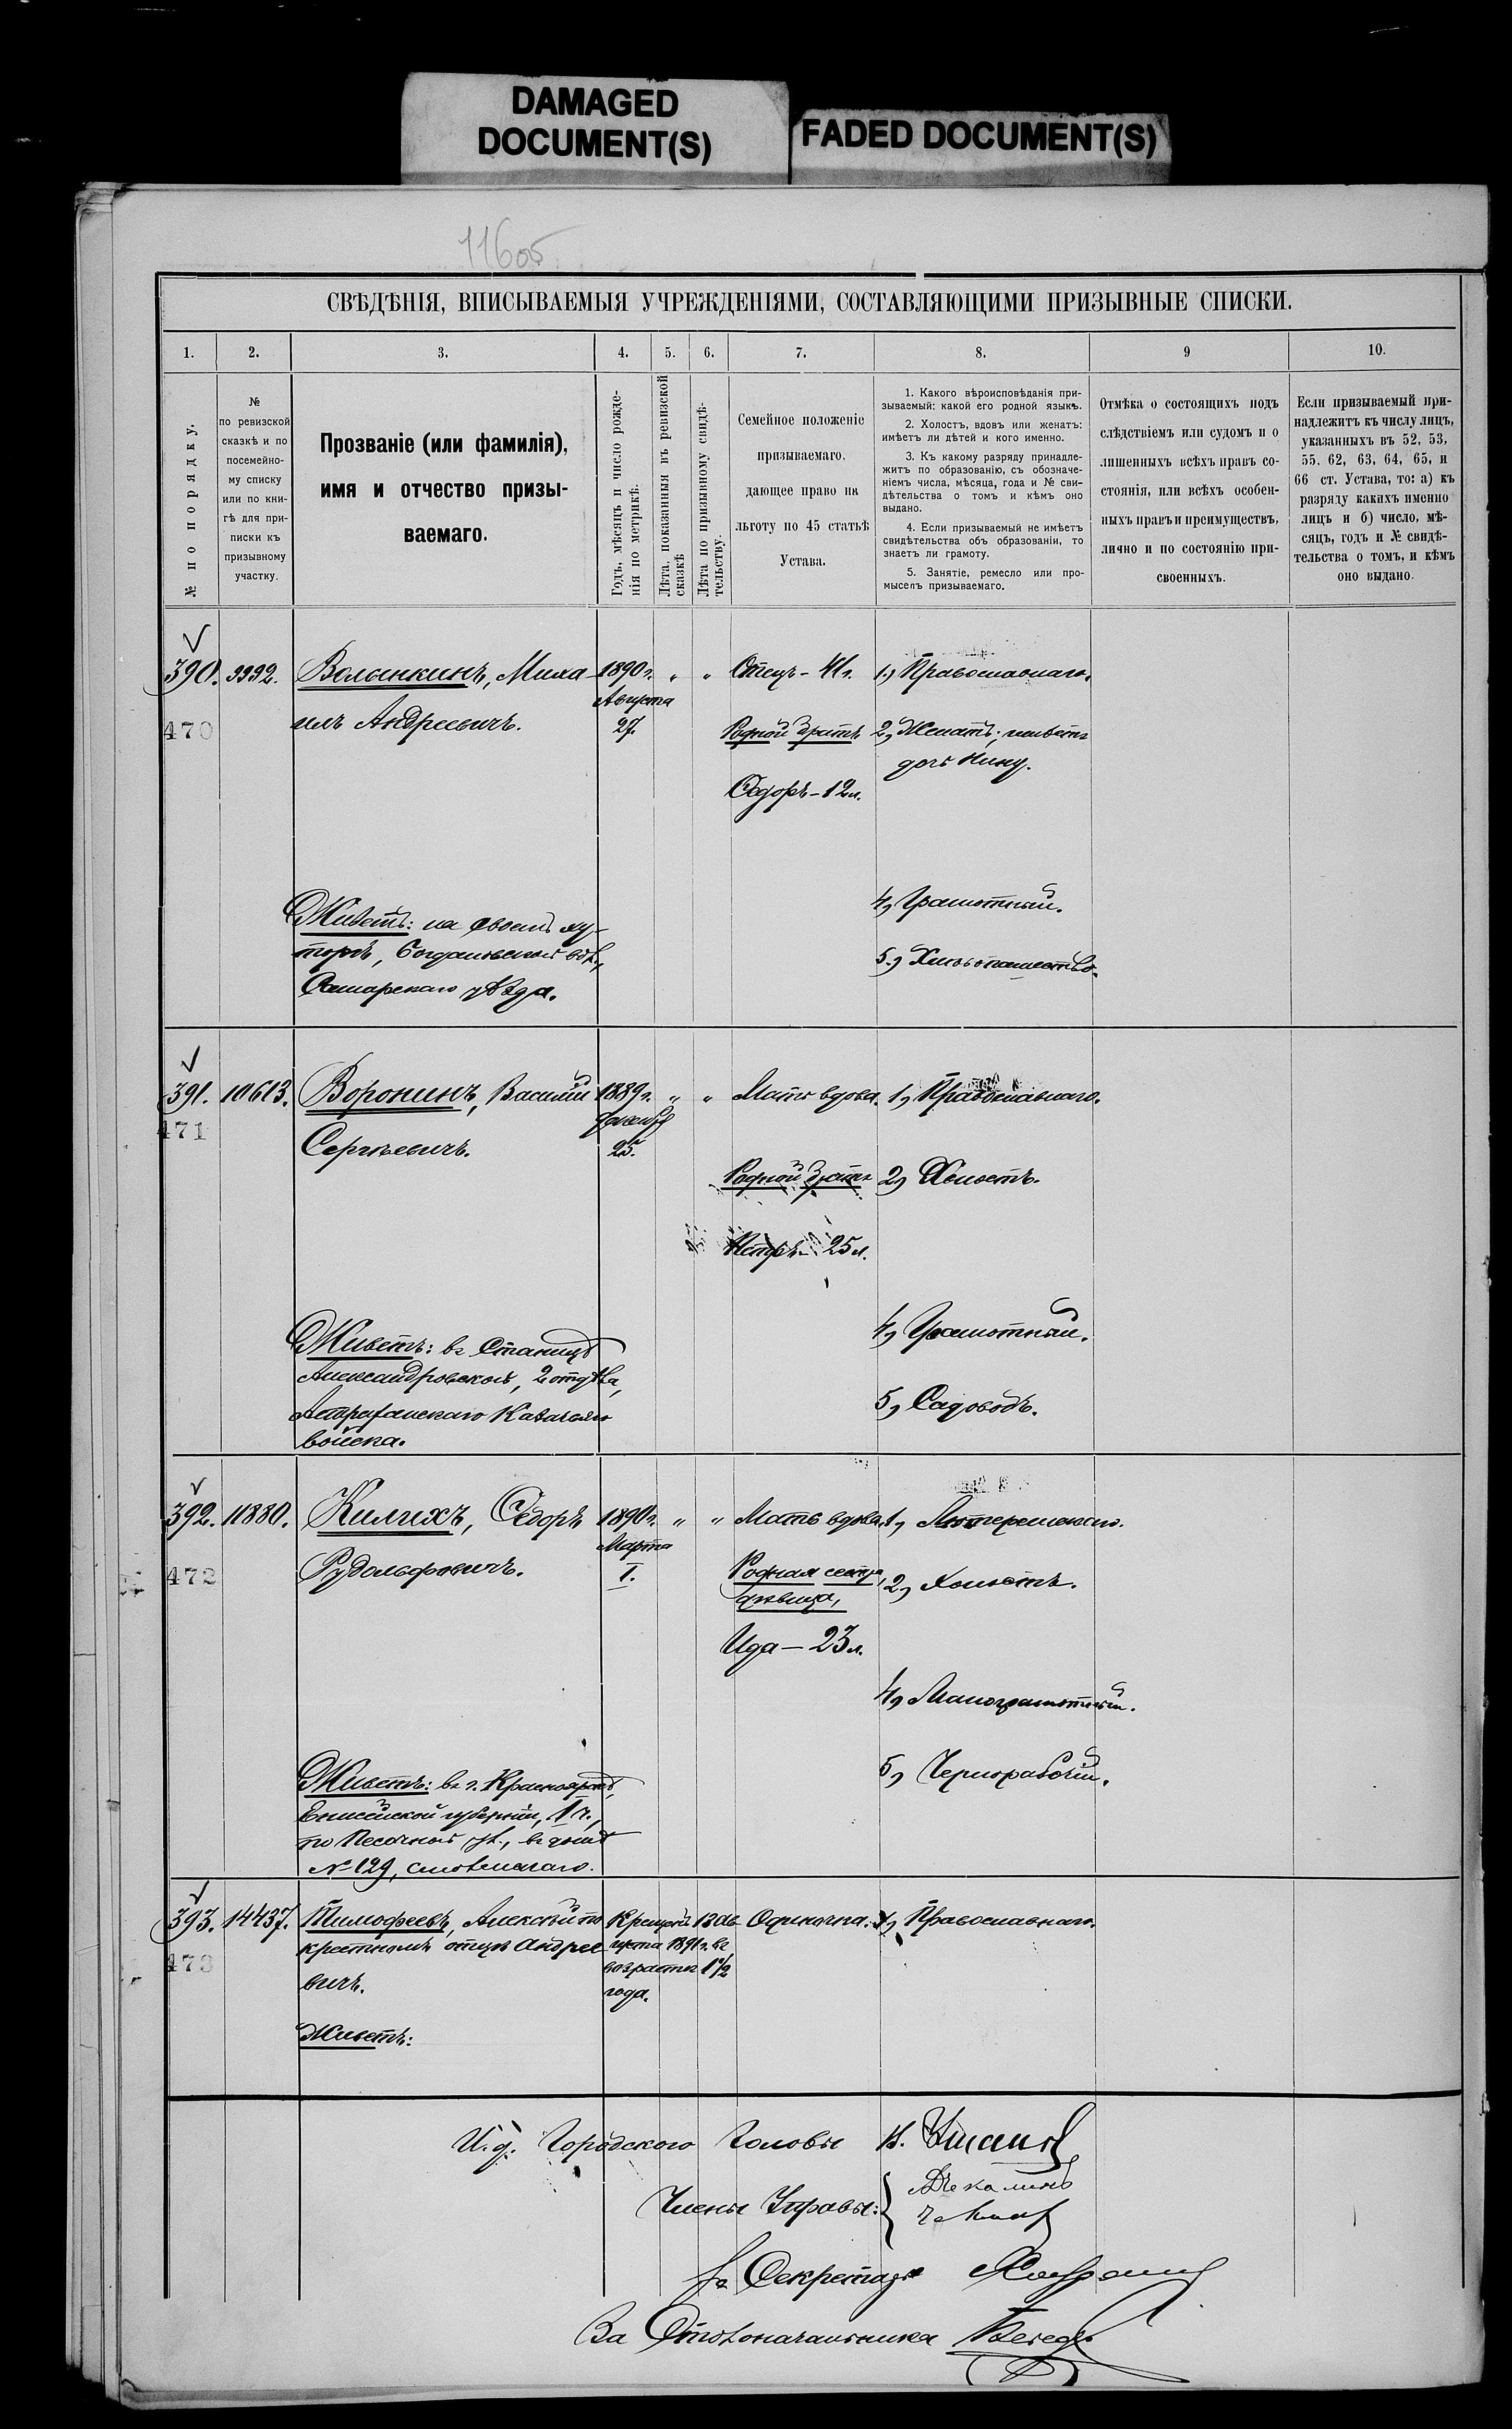 DAMAGED
DOCUMENT(S)
FADED DOCUMENT(S)
11605
СВѢДѢНІЯ, ВПИСЫВАЕМЫЯ УЧРЕЖДЕНІЯМИ, СОСТАВЛЯЮЩИМИ ПРИЗЫВНЫЕ СПИСКИ.
1.
2.
3.
4.
5.
6.
7.
8.
9
10.
№ по порядку.
№
по ревизской
сказкѣ и по
посемейно-
му списку
или по кни-
гѣ для при-
писки къ
призывному
участку.
Прозваніе (или фамилія),
имя и отчество призы-
ваемаго.
Годъ, мѣсяцъ и число рожде-
нія по метрикѣ.
Лѣта, показанныя въ ревизской
сказкѣ
Лѣта по призывному свидѣ-
тельству.
Семейное положеніе
призываемаго,
дающее право на
льготу по 45 статьѣ
Устава.
1. Какого вѣроисповѣданія при-
зываемый: какой его родной языкъ.
2. Холостъ, вдовъ или женатъ:
имѣетъ ли дѣтей и кого именно.
3. Къ какому разряду принадле-
житъ по образованію, съ обозначе-
ніемъ числа, мѣсяца, года и № сви-
дѣтельства о томъ и кѣмъ оно
выдано.
4. Если призываемый не имѣетъ
свидѣтельства объ образованіи, то
знаетъ ли грамоту.
5. Занятіе, ремесло или про-
мыселъ призываемаго.
Отмѣка о состоящихъ подъ
слѣдствіемъ или судомъ и о
лишенныхъ всѣхъ правъ со-
стоянія, или всѣхъ особен-
ныхъ правъ и преимуществъ,
лично и по состоянію при-
своенныхъ.
Если призываемый при-
надлежитъ къ числу лицъ,
указанныхъ въ 52, 53,
55, 62, 63, 64, 65, и
66 ст. Устава, то: а) къ
разряду какихъ именно
лицъ и б) число, мѣ-
сяцъ, годъ и № свидѣ-
тельства о томъ, и кѣмъ
оно выдано.
390.
470
9992.
Волынкинъ, Миха-
илъ Андреевичъ.
Живетъ: на своемъ ху-
торѣ, Богдановской вол.,
Самарскаго уѣзда.
1890 г.
Августа
27.
" "
Отецъ - 41 г.
Родной братъ
Ѳедоръ - 12 л.
1, Православнаго.
2, Женатъ; имѣетъ
дочь Нину.
4, Грамотный.
5, Хлѣбопашество.
391.
471
10613.
Воронинъ, Василій
Сергѣевичъ.
Живетъ: въ Станицѣ
Александровской, 2 отдѣла,
Астраханскаго Казачьяго
войска.
1889 г.
Декабря
25.
" "
Мать вдова.
Родной братъ
Петръ - 25 л.
1, Православнаго.
2, Холостъ.
4, Грамотный.
5, Садоводъ.
392.
472
11880.
Килихъ, Ѳедоръ
Рудольфовичъ.
Живетъ: въ г. Красноярскѣ,
Енисейской губерніи, 1 ч.,
по Песочной ул., въ домѣ
№ 129,
1890 г.
Марта
1.
" "
Мать вдова.
Родная сестра,
дѣвица,
Ида - 23 л.
1, Лютеранскаго.
2, Холостъ.
4, Малограмотный.
5, Чернорабочій.
393.
473
14437.
Тимофеевъ, Алексѣй по
крестномъ отцѣ Андрее-
вичъ.
Живетъ:
Крещенъ 13 Ав-
густа 1891 г. въ
возрастѣ 1½
года.
Одиночка.
1, Православнаго.
И. д. Городского Головы
Члены Управы:
За Секретаря
За Столоначальника